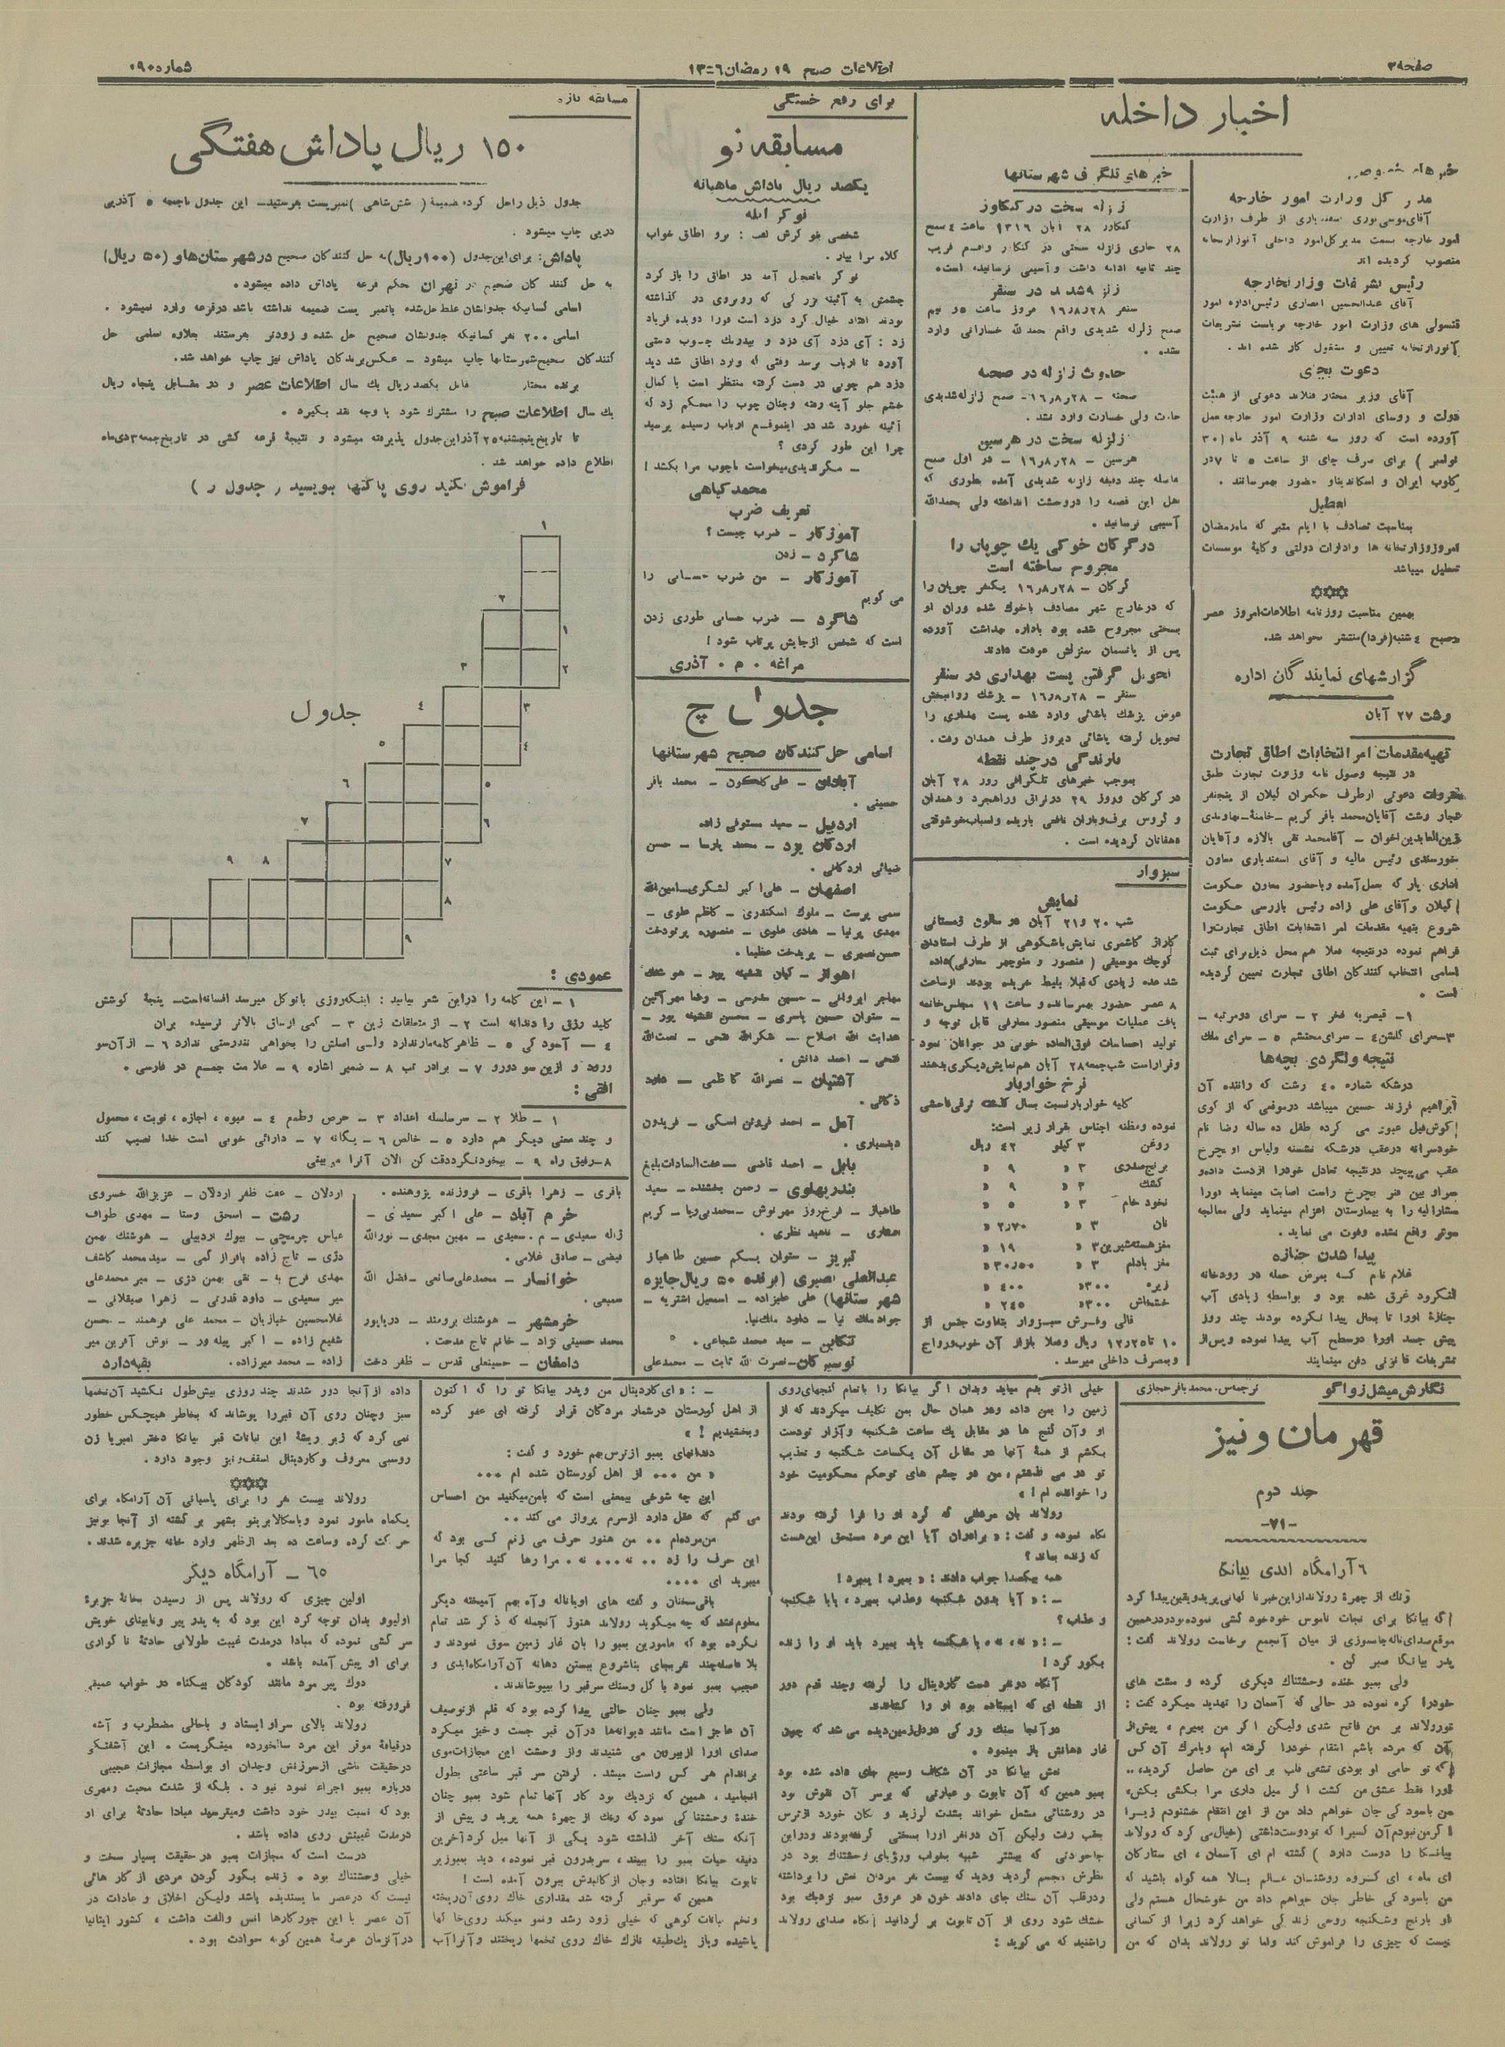 صفحه ۳
اطلاعات صبح ۱۹ رمضان ۱۳۵۶
شماره ۹۰
اخبار داخله
مدیر کل وزارت امور خارجه
آقای موسی نوری اسفندیاری از طرف وزارت
امور خارجه بسمت مدیر کل امور داخلی آنوزارتخانه
منصوب گردیده اند
رئیس تشریفات وزارتخارجه
آقای عبدالحسین انصاری رئیس اداره امور
قنسولی های وزارت امور خارجه بریاست تشریفات
آنوزارتخانه تعیین و مشغول کار شده اند .
دعوت بچای
آقای وزیر مختار فنلاند دعوتی از هیئت
دولت و روسای ادارات وزارت امور خارجه بعمل
آورده است که روز سه شنبه ۹ آذر ماه (۳۰
نوامبر ) برای صرف چای از ساعت ۵ تا ۷ در
کلوب ایران و اسکاندیناو حضور بهمرسانند .
تعطیل
بمناسبت تصادف با ایام متبرکه ماه رمضان
امروز وزارتخانه ها و ادارات دولتی و کلیه موسسات
تعطیل میباشد
بهمین مناسبت روزنامه اطلاعات امروز عصر
و صبح ۴ شنبه (فردا) منتشر نخواهد شد.
گزارشهای نمایندگان اداره
رشت ۲۷ آبان
تهیه مقدمات امر انتخابات اطاق تجارت
در نتیجه وصول نامه وزارت تجارت طبق
اداری یار که بعمل آمده و با حضور معاون حکومت
گیلان و آقای علی زاده رئیس بازرسی حکومت
شروع بتهیه مقدمات امر انتخابات اطاق تجارت را
فراهم نموده در نتیجه فعلا هم محل ذیل برای ثبت
اسامی انتخاب کنندگان اطاق تجارت تعیین گردیده
است .
۱- قیصریه فخر ۲ - سرای دو مرتبه -
۳- سرای گلشن ۴ - سرای محتشم ۵ - سرای ملک
نتیجه ولگردی بچه ها
درشکه شماره ۴۰ رشت که راننده آن
ابراهیم فرزند حسین میباشد در موقعی که از کوی
خودسرانه در عقب درشکه نشسته ولباس او بچرخ
عقب می پیچد در نتیجه تعادل خود را از دست داده و
موثر واقع نشده و فوت می نماید .
پیدا شدن جنازه
جنازه او را تا بحال پیدا نکرده بودند چند روز
پیش جسد او را در سطح آب پیدا نموده و پس از
تشریفات قانونی دفن مینمایند
خبرهای تلگرافی شهرستانها
زلزله سخت در کنگاور
کنگاور ۲۸ آبان ۱۳۱۶ ساعت ۴ صبح
۲۸ جاری زلزله سختی در کنگاور واقع قریب
چند ثانیه ادامه داشت و آسیبی نرسانیده است.
زلزله شدید در سنقر
سنقر ۱۶٫۸٫۲۸ امروز ساعت ۵ و نیم
صبح زلزله شدیدی واقع بحمدالله خساراتی وارد
نشده .
حدوث زلزله در صحنه
صحنه - ۱۶٫۸٫۲۸ - صبح زلزله شدیدی
حادث ولی خسارت وارد نشد .
زلزله سخت در هرسین
هرسین - ۱۶٫۸٫۲۸ - در اول صبح
بفاصله چند دقیقه زلزله شدیدی آمده بطوری که
اهل این قصبه را در وحشت انداخته ولی بحمدالله
آسیبی نرسانید .
در گرگان خوکی یک چوپان را
مجروح ساخته است
گرگان - ۱۶٫۸٫۲۸ یکنفر چوپان را
که در خارج شهر مصادف با خوک شده و ران او
بسختی مجروح شده بود باداره بهداشت آورده
پس از پانسمان بمنزلش عودت دادند
تحویل گرفتن پست بهداری در سنقر
سنقر - ۱۶٫۸٫۲۸ - پزشک روانبخش
عوض پزشک باشائی وارد شده پست بهداری را
تحویل گرفته باشائی دیروز طرف همدان رفت .
بارندگی در چند نقطه
بموجب خبرهای تلگرافی روز ۲۸ آبان
در گرگان و روز ۲۹ در عراق و راهجرد و همدان
و گروس برف و باران نافعی باریده و اسباب خوشوقتی
دهقانان گردیده است .
سبزوار
نمایش
شب ۲۰ و ۲۱ آبان در سالون زمستانی
کاراژ کاشمری نمایش باشکوهی از طرف استادان
کوچک موسیقی ( منصور و منوچهر معارفی) داده
شد عده زیادی که قبلا بلیط خریده بودند از ساعت
۸ عصر حضور بهمرسانده و ساعت ۱۱ مجلس خاتمه
یافت عملیات موسیقی منصور معارفی قابل توجه و
تولید احساسات فوق العاده خوبی در جوانان نمود
و قرار است شب جمعه ۲۸ آبان هم نمایش دیگری بدهند
نرخ خواربار
کلیه خواربار نسبت بسال گذشته ترقی فاحشی
نموده و مظنه اجناس بقرار زیر است:
روغن ۳ کیلو ۴۲ ریال
برنج صدری ۳ » ۹ »
کشک ۳ » ۹ »
نخود خام ۳ » ۵ »
نان ۳ » ۲٫۷۰ »
مغز هسته شیرین ۳ » ۱۹ »
مغز بادام ۳ » ۳۰٫۵۰ »
زیره ۳۰۰ » ۴۰۰ »
خشخاش ۳۰۰ » ۲۴۵ »
قالی و فرش سبزوار بتفاوت جنس از
۱۰ تا ۱۲٫۲۵ ریال و فعلا بازار آن خوب و رواج
و بمصرف داخلی میرسد .
برای رفع خستگی
مسابقه نو
یکصد ریال پاداش ماهیانه
نوکر ابله
شخصی بنوکرش گفت : برو اطاق خواب
کلاه مرا بیار .
نوکر بتعجیل آمد در اطاق را باز کرد
چشمش به آئینه بزرگی که روبروی در گذاشته
بودند افتاد خیال کرد دزد است فورا دویده فریاد
زد : آی دزد آی دزد و بیدرنگ چوب دستی
آورد تا ارباب برسد وقتی که وارد اطاق شد دید
دزد هم چوبی در دست گرفته منتظر است با کمال
خشم جلو آینه رفته و چنان چوب را محکم زد که
آئینه خورد شد در اینموقع ارباب رسیده پرسید
چرا این طور کردی ؟
- مگر ندیدی میخواست با چوب مرا بکشد !
محمد کیاهی
تعریف ضرب
آموزگار - ضرب چیست ؟
شاگرد - زدن
آموزگار - من ضرب حسابی را
می گویم
شاگرد - ضرب حسابی طوری زدن
است که شخص از جایش پرتاب شود !
مراغه . م . آذری
جدول چ
اسامی حل کنندگان صحیح شهرستانها
آبادان - علی کلکون - محمد باقر
حسینی .
اردبیل - سعید مستوفی زاده
اردکان یزد - محمد پارسا - حسن
ضیائی اردکانی .
اصفهان - علی اکبر لشگری - امین الله
سمی پرست - ملوک اسکندری - کاظم علوی -
مهدی پرنیا - هادی علوی - منصوره پرتودخت
حسن نصیری - پریدخت عظیما .
مهاجر ایروانی - حسین مدرسی - رضا مهرآئین
هدایت الله اصلاح - شکرالله فتحی - نعمت الله
فتحی - احمد دانش .
آشتیان - نصرالله کاظمی - داود
ذکائی .
آمل - احمد فروتن اسکی - فریدون
بابل - احمد قاضی - عفت السادات بلیغ
بندر پهلوی - رحمن بخشنده - سعید
تبریز - ستوان یکم حسین طاهباز
عبدالعلی نصیری (برنده ۵۰ ریال جایزه
شهرستانها) علی علیزاده - اسمعیل اشتریه -
جواد ملک نیا - داود ملک نیا .
تنکابن - سید محمد شجاعی .
تویسرکان - نصرت الله ثابت - محمدعلی
باقری - زهرا باقری - فروزنده پژوهنده .
خرم آباد - علی اکبر سعیدی -
ژاله سعیدی - م . سعیدی - مهین مجدی - نورالله
فیضی - صادق غلامی .
خوانسار - محمد علی صانعی - فضل الله
سمیعی .
خرمشهر - هوشنگ برومند - دریاپور
محمد حسینی نژاد - خانم تاج مدحت .
دامغان - حسینعلی قدس - ظفر دخت
اردلان - عفت ظفر اردلان - عزیزالله خسروی
رشت - اسحق وستا - مهدی طواف
عباس چرمچی - بیوک اردبیلی - هوشنگ بهمن
دژی - تاج زاده باقرار گمی - سید محمد کاشف
مهدی فرح به - تقی بهمن دژی - میر محمدعلی
میر سعیدی - داود قدرتی - زهرا صیقلانی -
غلامحسین خیازیان - محمد علی فرهمند - حسن
شفیع زاده - اکبر پیله ور - نوش آفرین میر
زاده - محمد میرزاده . بقیه دارد
مسابقه تازه
۱۵۰ ریال پاداش هفتگی
جدول ذیل را حل کرده بضمیمه ( شش شاهی ) تمبر پست بفرستید - این جدول تا جمعه ۵ آذر پی
در پی چاپ میشود .
پاداش: برای این جدول (۱۰۰ ریال) به حل کنندگان صحیح در شهرستانها و (۵۰ ریال)
به حل کنندگان صحیح در تهران بحکم قرعه پاداش داده میشود .
اسامی کسانیکه جدولشان غلط حل شده یا تمبر پست ضمیمه نداشته باشد در قرعه وارد نمیشود .
اسامی ۲۰۰ نفر کسانیکه جدولشان صحیح حل شده و زودتر بفرستند بعلاوه اسامی حل
کنندگان صحیح شهرستانها چاپ میشود - عکس برندگان پاداش نیز چاپ خواهد شد .
برنده مختار مقابل یکصد ریال یک سال اطلاعات عصر و در مقابل پنجاه ریال
یک سال اطلاعات صبح را مشترک شود یا وجه نقد بگیرد .
تا تاریخ پنجشنبه ۲۵ آذر این جدول پذیرفته میشود و نتیجه قرعه کشی در تاریخ جمعه ۳ دی ماه
اطلاع داده خواهد شد .
فراموش نکنید روی پاکتها بنویسید ( جدول ر )
جدول
۱
۲
۳
۴
۵
۶
۷
۸
۹
۱
۲
۳
۴
۵
۶
۷
۸
۹
عمودی :
۱ - این کلمه را در این شعر بیابید : اینکه روزی با توکل میرسد افسانه است - پنجه کوشش
کلید رزق را دندانه است ۲ - از متعلقات زین ۳ - کمی از ساق بالاتر نرسیده بران
۴ - آسودگی ۵ - ظاهر کلمه مار ندارد ولی اصلش را بخواهی تندرستی ندارد ۶ - از آن سو
ورود و ازین سو دورو ۷ - برادر تب ۸ - ضمیر اشاره ۹ - علامت جمع در فارسی .
افقی :
۱ - طلا ۲ - سر سلسله اعداد ۳ - حرص و طمع ۴ - میوه ، اجازه ، نوبت ، محصول
و چند معنی دیگر هم دارد ۵ - خالص ۶ - یگانه ۷ - دارائی خوبی است خدا نصیب کند
۸ - رفیق راه ۹ - بیخود نگرد دقت کن الان آنرا می بینی
نگارش میشل زواگو
ترجمه س. محمد باقر حجازی
قهرمان ونیز
جلد دوم
-۷۱-
۶ آرامگاه ابدی بیانکا
رنگ از چهره رولاند از این خبر ناگهانی پرید و یقین پیدا کرد
که بیانکا برای نجات ناموس خود خودکشی نموده بود در همین
موقع صدای ناله جانسوزی از میان آنجمع برخاست رولاند گفت :
پدر بیانکا صبر کن .
ولی بمبو خنده وحشتناک دیگری کرده و مشت های
خود را گره نموده در حالی که آسمان را تهدید میکرد گفت :
تو رولاند بر من فاتح شدی ولیکن اگر من بمیرم ، پیش از
آن که مرده باشم انتقام خود را گرفته ام و بامرگ آن کس
که تو حامی او بودی تشفی قلب برای من حاصل گردید ...
بیانکا را دوست دارد ) گشته ام ای آسمان ، ای ستارگان
ای ماه ، ای کره روشنان عالم بالا همه گواه باشید که
من باسودگی خاطر جان خواهم داد من خوشحال هستم ولی
او بارنج و شکنجه روحی زندگی خواهد کرد زیرا از کسانی
نیست که چیزی را فراموش کند و اما تو رولاند بدان که من
خیلی از تو بدم میاید و بدان اگر بیانکا را با تمام گنجهای روی
زمین را بمن داده و در همان حال بمن تکلیف میکردند که از
او و آن گنج ها در مقابل یک ساعت شکنجه و آزار تو دست
بکشم از همه آنها در مقابل آن یکساعت شکنجه و تعذیب
تو در می گذشتم ، من در چشم های تو حکم محکومیت خود
را خوانده ام ! »
رولاند بآن مردمانی که گرد او را فرا گرفته بودند
نگاه نموده و گفت : « برادران آیا این مرد مستحق این هست
که زنده بماند ؟
همه بیکصدا جواب دادند : « بمیرد ! بمیرد !
- : « آیا بدون شکنجه و عذاب بمیرد ، یا با شکنجه
و عذاب ؟
- : « نه ، نه ، با شکنجه باید بمیرد باید او را زنده
بگور کرد !
آنگاه دو نفر دست کاردینال را گرفته و چند قدم دور
از نقطه ای که ایستاده بود او را کشاندند
در آنجا سنگ بزرگی در دل زمین دیده می شد که چون
غار دهانش باز مینمود .
نعش بیانکا در آن شکاف وسیع جای داده شده بود
بمبو همین که آن تابوت و عبارتی که بر سر آن نقوش بود
در روشنائی مشعل خواند بشدت لرزید و تکان خورد از ترس
بعقب رفت ولیکن آن دو نفر او را بسختی گرفته بودند و در این
نظرش مجسم گردید و دید که بیست نفر مردان نعش را برداشته
و در قلب آن سنگ جای دادند خون در عروق بمبو نزدیک بود
خشک شود روی از آن تابوت بر گردانید آنگاه صدای رولاند
را شنید که می گوید :
- : « ای کاردینال من و پدر بیانکا تو را که اکنون
از اهل گورستان در شمار مردگان قرار گرفته ای عفو کرده
و بخشیدیم ! »
دندانهای بمبو از ترس بهم خورد و گفت :
« من ... از اهل گورستان شده ام ...
این چه شوخی بیمعنی است که بامن میکنید من احساس
می کنم که عقل دارد از سرم پرواز می کند ..
من مرده ام .. من هنوز حرف می زنم کسی بود که
این حرف را زد .. نه ... نه . مرا رها کنید کجا مرا
میبرید ای ....
باقی سخنان و گفته های او با ناله و آه بهم آمیخته دیگر
معلوم نشد که چه میگوید رولاند هنوز آنجمله که ذکر شد تمام
نکرده بود که مامورین بمبو را بآن غار زمین سوق نمودند و
عجیب بمبو نمود با گل و سنگ سر قبر را بپوشاندند .
ولی بمبو چنان حالتی پیدا کرده بود که قلم از توصیف
آن عاجز است مانند دیوانه ها در آن قبر جست و خیز میکرد
صدای او را از بیرون می شنیدند و از وحشت این مجازات موی
براندام هر کس راست میشد . گرفتن سر قبر ساعتی بطول
انجامید ، همین که نزدیک بود کار آنها تمام شود بمبو چنان
خنده وحشتناکی نمود که رنگ از چهره همه پرید و پیش از
آنکه سنگ آخر گذاشته شود یکی از آنها میل کرد آخرین
دقیقه حیات بمبو را ببیند ، سر بدرون قبر نموده ، دید بمبو زیر
تابوت بیانکا افتاده و جان از کالبدش بیرون آمده است !
همین که سر قبر گرفته شد مقداری خاک روی آن ریخته
و تخم نباتات کوهی که خیلی زود رشد و نمو میکند روی خاکها
پاشیده و باز یک طبقه نازک خاک روی تخمها ریختند و آنرا آب
داده از آنجا دور شدند چند روزی بیش طول نکشید آن تخمها
سبز و چنان روی آن قبر را پوشاند که بخاطر هیچکس خطور
نمی کرد که زیر ریشه این نباتات قبر بیانکا دختر امپریا زن
روسپی معروف و کاردینال اسقف ونیز وجود دارد .
رولاند بیست نفر را برای پاسبانی آن آرامگاه برای
یکماه مامور نمود و باسکالابرینو بشهر برگشته از آنجا بونیز
حرکت کرده و ساعت ده بعد از ظهر وارد خانه جزیره شدند .
۶۵ - آرامگاه دیگر
اولین چیزی که رولاند پس از رسیدن بخانه جزیره
اولیوو بدان توجه کرد این بود که به پدر پیر و نابینای خویش
سرکشی نموده که مبادا در مدت غیبت طولانی حادثه ناگواری
برای او پیش آمده باشد .
دوک پیر مرد مانند کودکان بیگناه در خواب عمیقی
فرو رفته بود .
رولاند بالای سر او ایستاد و باحالی مضطرب و آشفته
در قیافه موقر این مرد سالخورده مینگریست . این آشفتگی
در حقیقت ناشی از سرزنش وجدان او بواسطه مجازات عجیبی
درباره بمبو اجراء نمود نبود . بلکه از شدت محبت و مهری
بود که نسبت بپدر خود داشت و میترسید مبادا حادثه برای او
در مدت غیبتش روی داده باشد .
درست است که مجازات بمبو در حقیقت بسیار سخت و
خیلی وحشتناک بود . زنده بگور کردن مردی از کارهائی
نیست که در عصر ما پسندیده باشد ولیکن اخلاق و عادات در
آن عصر با این جور کارها انس و الفت داشت ، کشور ایتالیا
در آنزمان عرصه همین گونه حوادث بود .